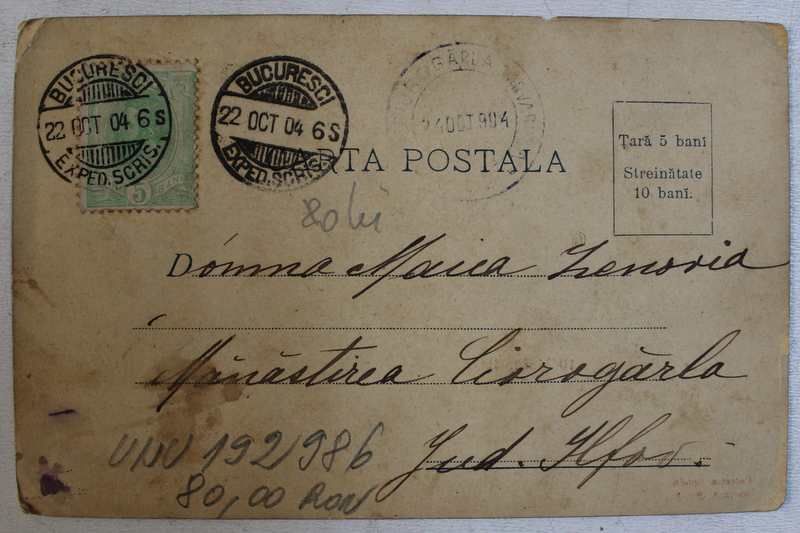 BUCURESCI
22 OCT 04 6S
EXPED. SCRIS.
5 BANI
BUCURESCI
22 OCT 04 6S
EXPED. SCRIS.
24 OCT 904
RTA POSTALA
Țară 5 bani
Streinătate
10 bani.
80 lei
Domna Maica Zenovia
Mănăstirea Ciorogârla
Jud. Ilfov.
192986
80,00 RON